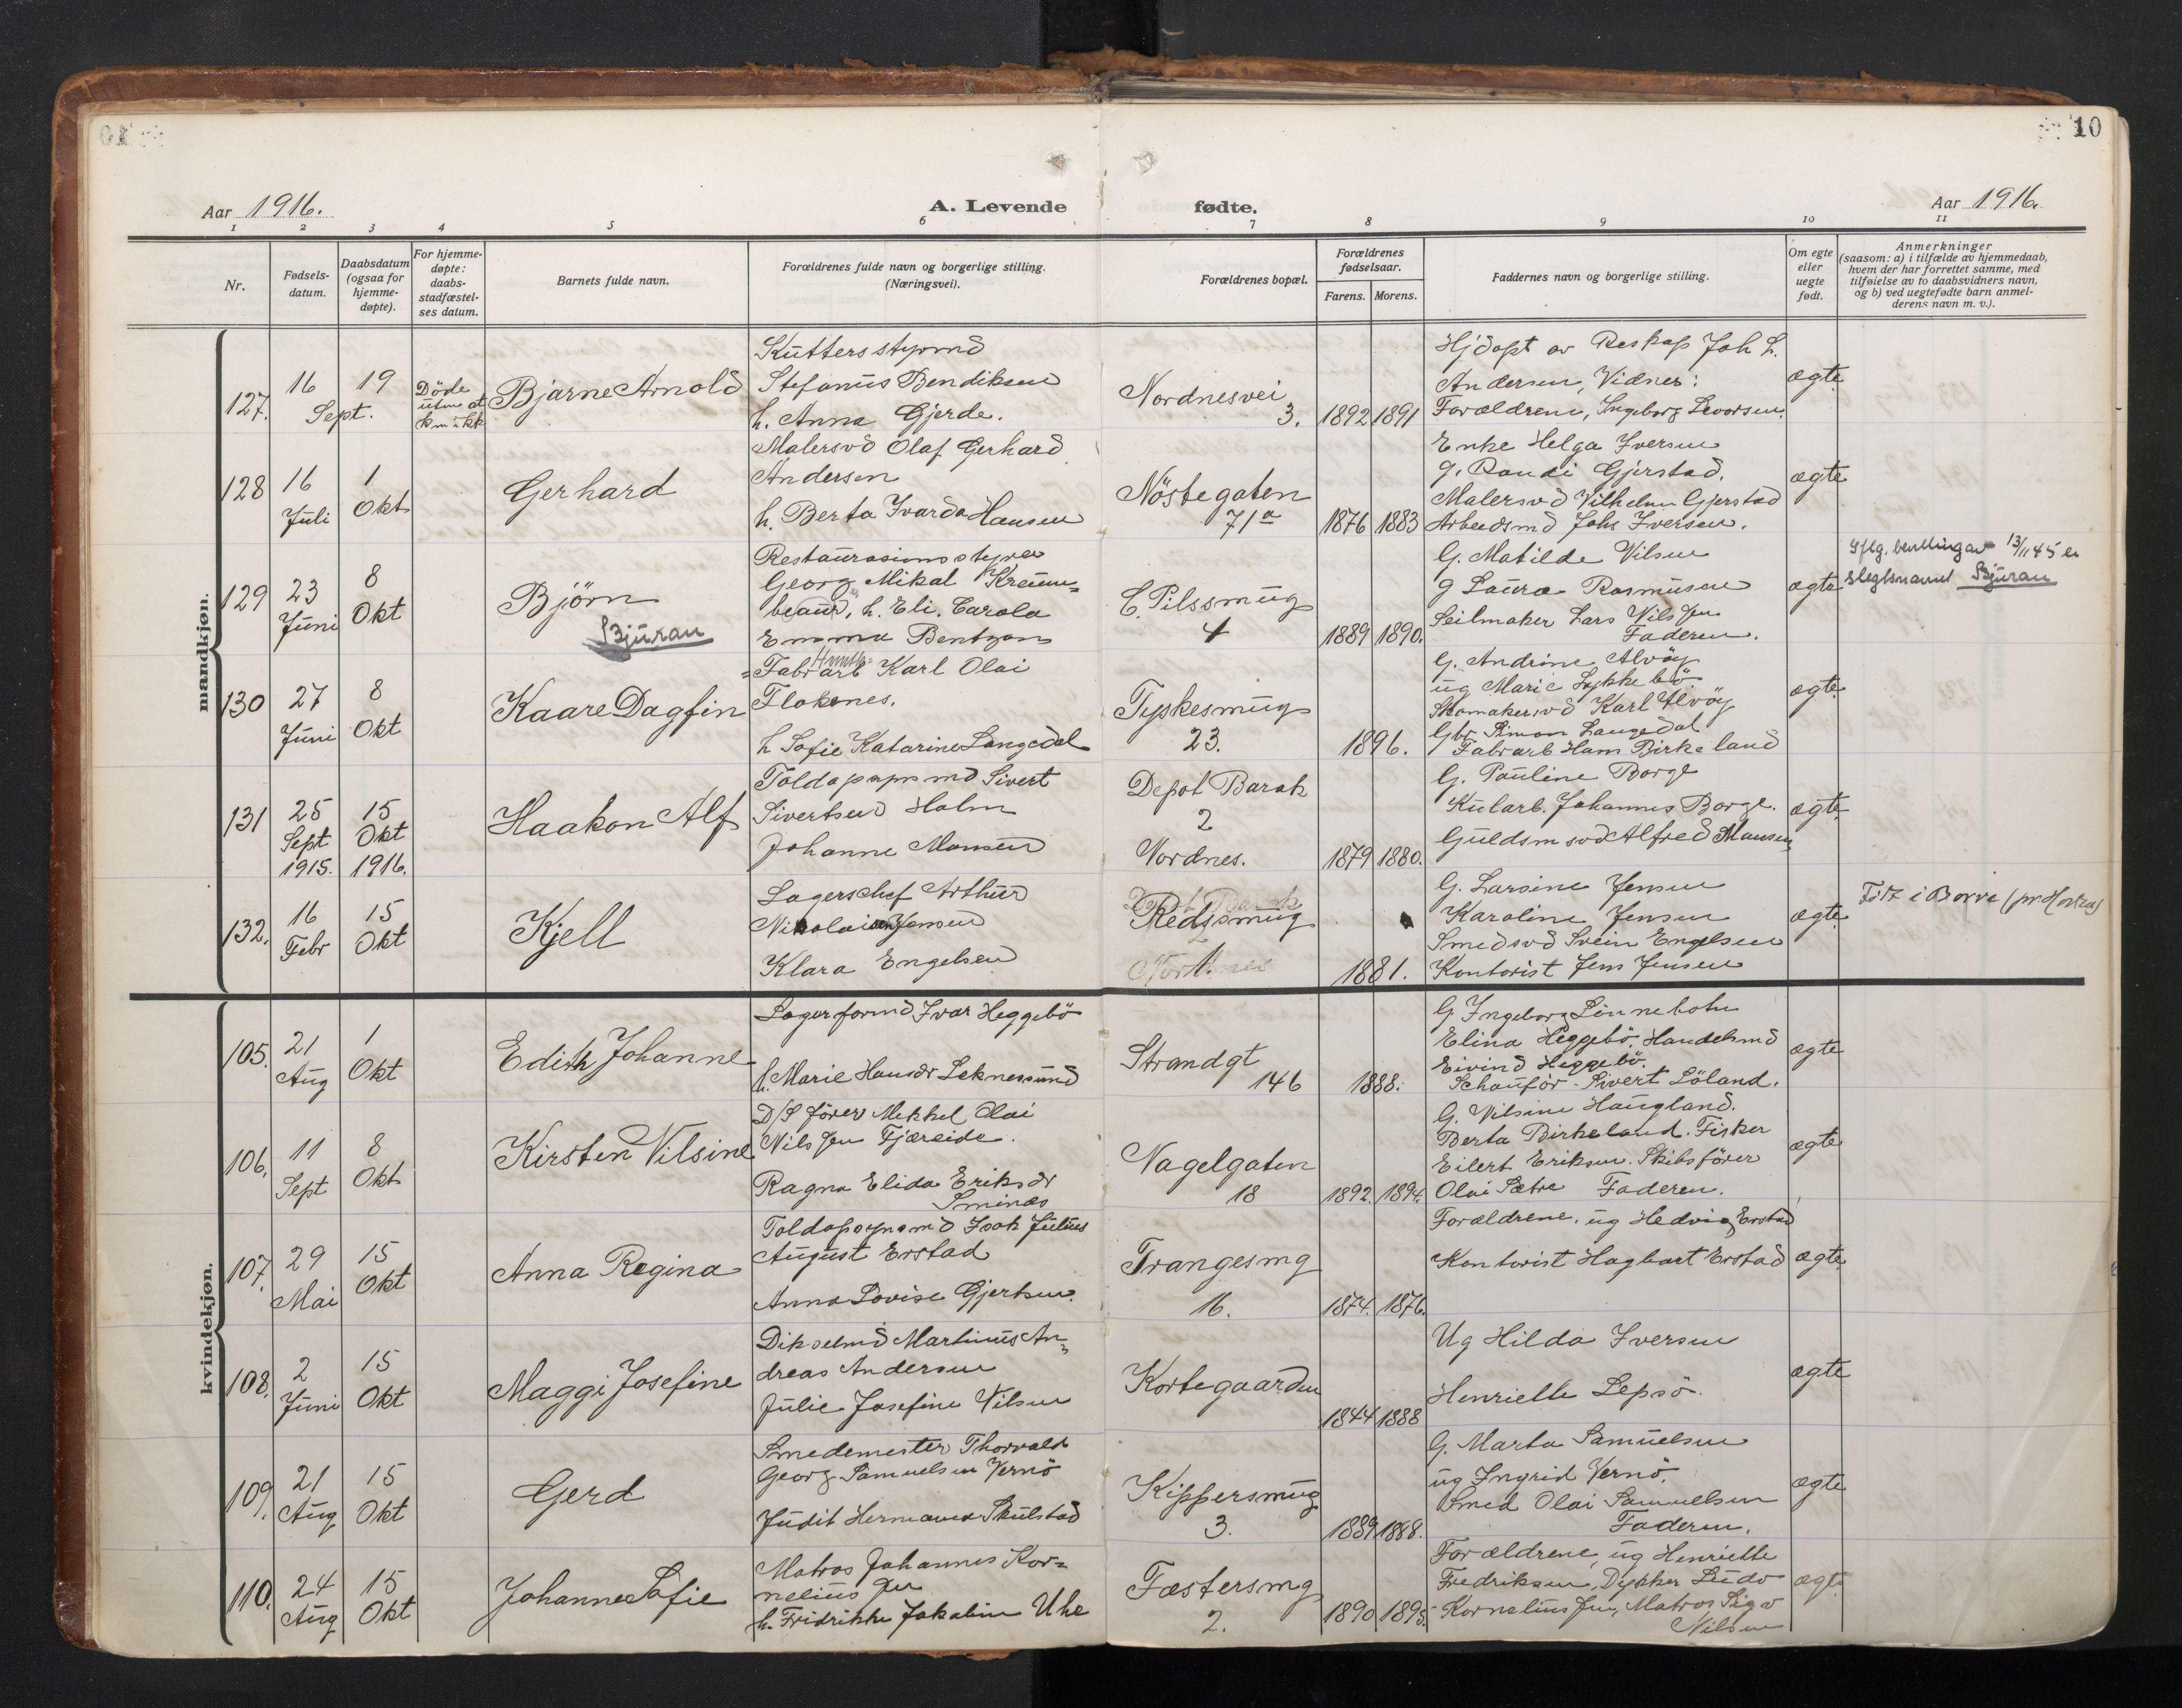 10
Aar 1916.
A. Levende fødte.
Aar 1916.
1 2 3 4 5 6 7 8 9 10 11
Nr.
Fødsels-
datum.
Daabsdatum
(ogsaa for
hjemme-
døpte).
For hjemme-
døpte:
daabs-
stadfæstel-
ses datum.
Barnets fulde navn.
Forældrenes fulde navn og borgerlige stilling.
(Næringsvei).
Forældrenes bopæl.
Forældrenes
fødselsaar.
Farens. Morens.
Faddernes navn og borgerlige stilling.
Om egte
eller
uegte
født.
Anmerkninger
(saasom: a) i tilfælde av hjemmedaab,
hvem der har forrettet samme, med
tilføielse av to daabsvidners navn,
og b) ved uegtefødte barn anmel-
derens navn m. v.).
mandkjøn.
127.
16 19
Sept.
Döde
Bjarne Arnold
Kuttersstyrmd
Stefanus Bendiksen
h. Anna Gjerde.
Nordnesvei
3.
1892 1891
Hjdøpt av Reskap Joh L.
Andersen, Vidner:
Forældrene, Ingeborg Sevorsen.
ægte
128
16 1
Juli Okt
Gerhard
Malersvd Olaf Gerhard
Andersen
h. Berta Ivarda Hansen
Nöstegaten
71a
1876 1883
Enke Helga Iversen
g. Randi Gjerstad.
Malersvd Vilhelm Gjerstad
Arbeidsmd Johs Iversen.
ægte
129
23 8
Juni Okt
Björn
Bjuran
Restaurasionsstyrer
Georg Mikal Kreum=
beaur, h. Eli. Carola
Emma Bentzon
C. Pilssmug
4
1889 1890.
G. Matilde Nilsen
g Laura Rasmusen
Seilmaker Lars Nilsen
Faderen.
ægte
Iflg. bevilling av 13/11 45 er
slegtsnavnet Bjuran
130
27 8
Juni Okt
Kaare Dagfin
Fabrarb Karl Olai
Flokenes.
h Sofie Katarine Langedal
Tyskesmug
23.
1896.
G. Andrine Alvöy
ug Marie Lykkebö
Skomakersvd Karl Alvöy
Gbr Simon Langedal
Fabrarb Hans Birkeland
ægte
131
25 15
Sept Okt
1915. 1916.
Haakon Alf
Toldopsynsmd Sivert
Sivertsen Holm
Johanne Monsen
Depot Barak
2
Nordnes.
1879 1880.
G. Pauline Borge
Kularb. Johannes Borge.
Guldsm svd Alfred Monsen
ægte
132.
16 15
Febr Okt
Kjell
Lagerschef Arthur
Nikolaisen Jensen
Klara Engelsen
Redssmug
1.
1881.
G. Larsine Jensen
Karoline Jensen
Smedsvd Svein Engelsen
Kontorist Jens Jensen
ægte
kvindekjøn.
105.
21 1
Aug Okt
Edith Johanne
Lagerformd Ivar Heggebö
h. Marie Hansdr Leknessund
Strandgt
146
1888.
G Ingeborg Linneboln
Elina Heggebö. Handelsmd
Eivind Heggebö.
Schauför Sivert Löland.
ægte
106.
11 8
Sept Okt
Kirsten Nilsine
D/S förer Mekkel Olai
Nilssen Fjæreide.
Ragna Elida Eriksdr
Sminæs
Nagelgaten
18
1892. 1894.
G. Nilsine Haugland.
Berta Birkeland. Fisker
Eilert Eriksen. Skibsförer
Olai Sætre Faderen.
ægte
107.
29 15
Mai Okt
Anna Regina
Toldopsynsmd Isak Julius
August Erstad
Anna Lovise Gjertsen.
Trangesmg
16.
1874. 1876.
Forældrene, ug Hedvig Erstad
Kontorist Hagbart Erstad
ægte
108.
2 15
Juni Okt
Maggi Josefine
Dikselmd Martinus An=
dreas Andersen
Julie Josefine Nilsen
Kortegaarden
1844 1888
Ug Hilda Iversen
Henriette Lepsö.
ægte
109.
21 15
Aug Okt
Gerd
Smedemester Thorvald
Georg Samuelsen Vernö
Judit Hermana Skulstad
Kippersmug
3.
1889 1888.
G. Marta Samuelsen
ug Ingrid Vernö.
Smed Olai Samuelsen
Faderen.
ægte
110.
24 15
Aug Okt
Johanne Sofie
Matros Johannes Kor=
neliussen
h. Fridrikke Jakobine Uhe
Fæstersmg
2.
1890 1895.
Forældrene, ug Henriette
Fredriksen, Dykker Ludv
Korneliussen, Matros Sigv
Nilsen
ægt